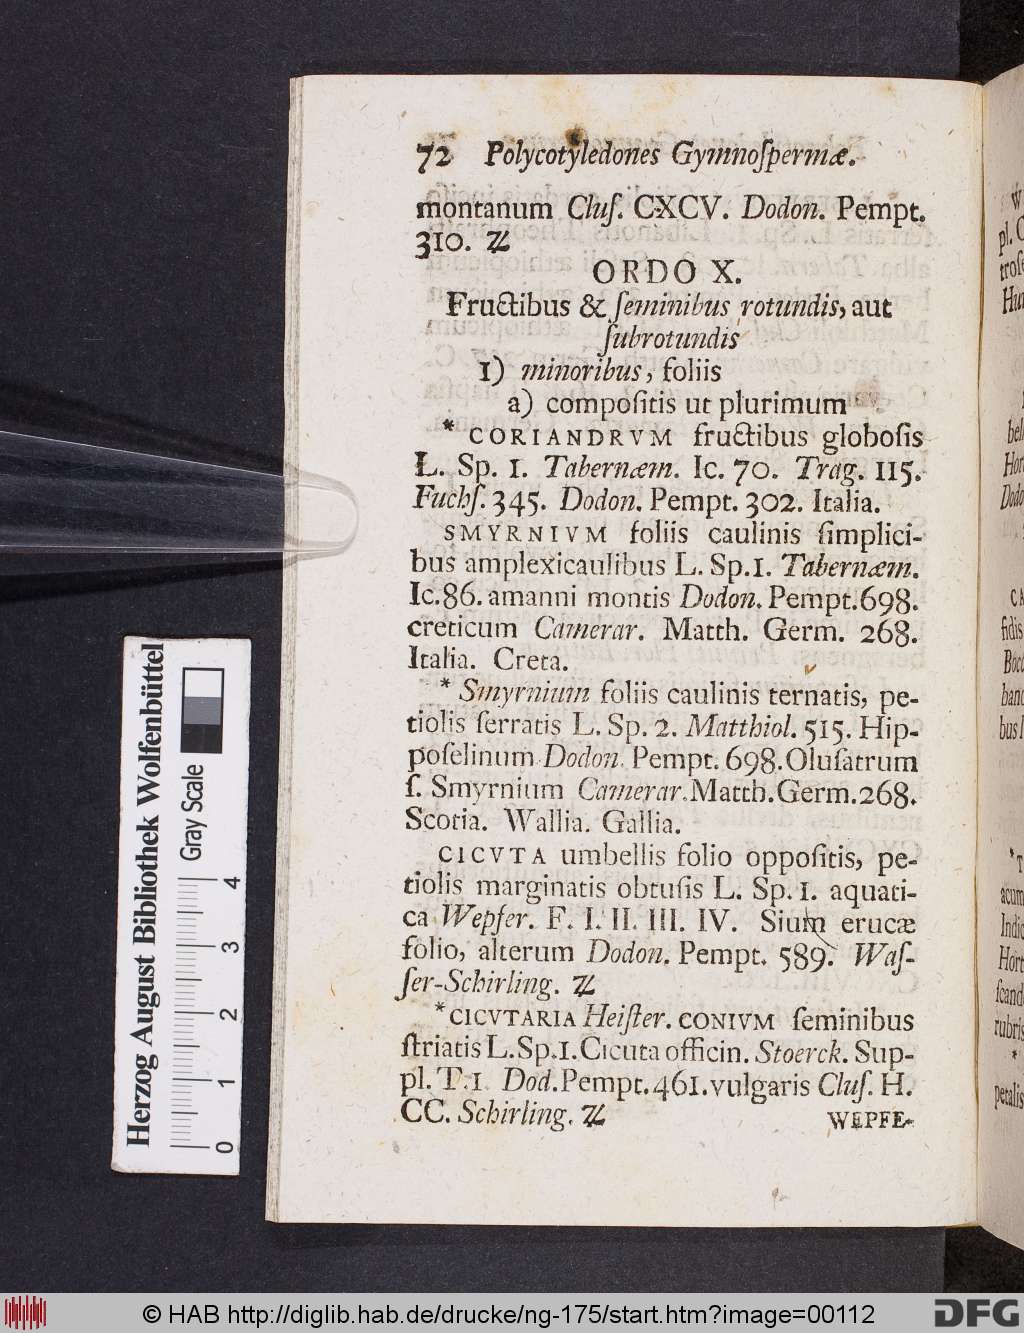 72 Polycotyledones Gymnoſpermæ.
montanum Cluſ. CXCV. Dodon. Pempt.
310. ♃
ORDO X.
Fructibus & ſeminibus rotundis, aut
ſubrotundis
1) minoribus, foliis
a) compoſitis ut plurimum
* CORIANDRVM fructibus globoſis
L. Sp. 1. Tabernæm. Ic. 70. Trag. 115.
Fuchſ. 345. Dodon. Pempt. 302. Italia.
SMYRNIVM foliis caulinis ſimplici-
bus amplexicaulibus L. Sp. 1. Tabernæm.
Ic. 86. amanni montis Dodon. Pempt. 698.
creticum Camerar. Matth. Germ. 268.
Italia. Creta.
* Smyrnium foliis caulinis ternatis, pe-
tiolis ſerratis L. Sp. 2. Matthiol. 515. Hip-
poſelinum Dodon. Pempt. 698. Oluſatrum
ſ. Smyrnium Camerar. Matth. Germ. 268.
Scotia. Wallia. Gallia.
CICVTA umbellis folio oppoſitis, pe-
tiolis marginatis obtuſis L. Sp. 1. aquati-
ca Wepfer. F. I. II. III. IV. Sium erucæ
folio, alterum Dodon. Pempt. 589. Waſ-
ſer-Schirling. ♃
* CICVTARIA Heiſter. CONIVM ſeminibus
ſtriatis L. Sp. 1. Cicuta officin. Stoerck. Sup-
pl. T. 1 Dod. Pempt. 461. vulgaris Cluſ. H.
CC. Schirling. ♃
WEPFE-
Herzog August Bibliothek Wolfenbüttel
Gray Scale
0 1 2 3 4
© HAB http://diglib.hab.de/drucke/ng-175/start.htm?image=00112
DFG